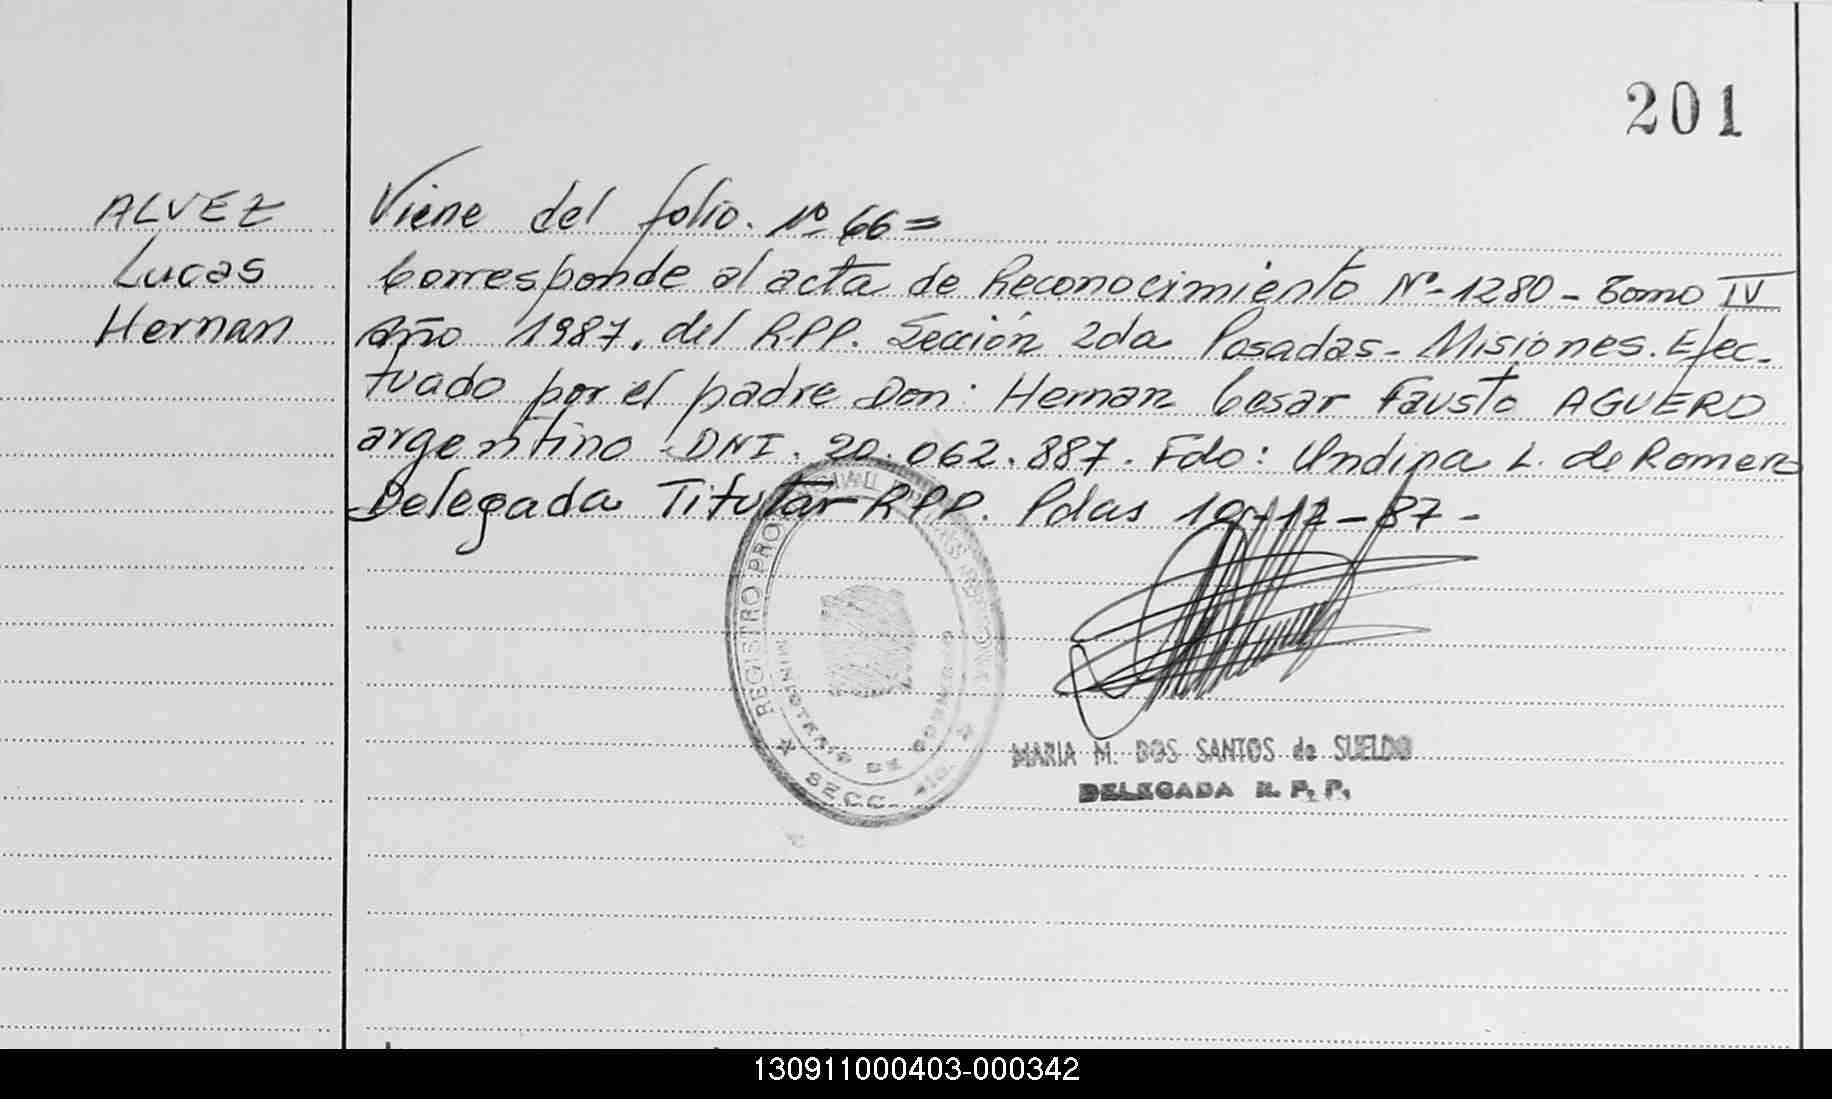 201
ALVEZ
Lucas
Hernan
Viene del folio. Nº 66=
Corresponde al acta de Reconocimiento Nº-1280- Tomo IV
Año 1987. del R.P.P. Sección 2da Posadas- Misiones. Efec-
tuado por el padre Don: Hernan Cesar Fausto AGUERO
argentino - DNI. 20.062.887. Fdo: Undina L. de Romero
Delegada Titular R.P.P. Pdas 10-12-87-
REGISTRO
MINISTERIO DE GOBIERNO
SECC.
MARIA M. DOS SANTOS de SUELDO
DELEGADA R. P. P.
130911000403-000342